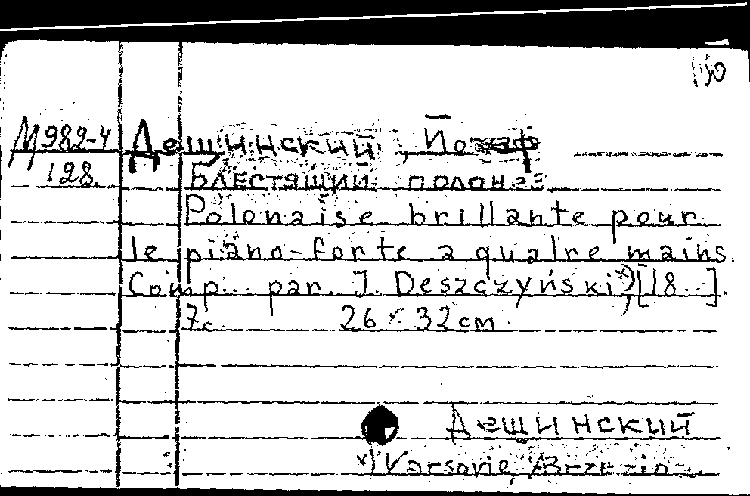 М982-4 Дещинский, Йозеф
128. Блестящий полонез
Polonaise brillante pour
le piano-forte a quatre mains.
Comp. par. J. Deszczyński ˣ⁾, [18 ].
7с. 26 × 32 см.
Дещинский
ˣ⁾ Varsovie, Brzezina